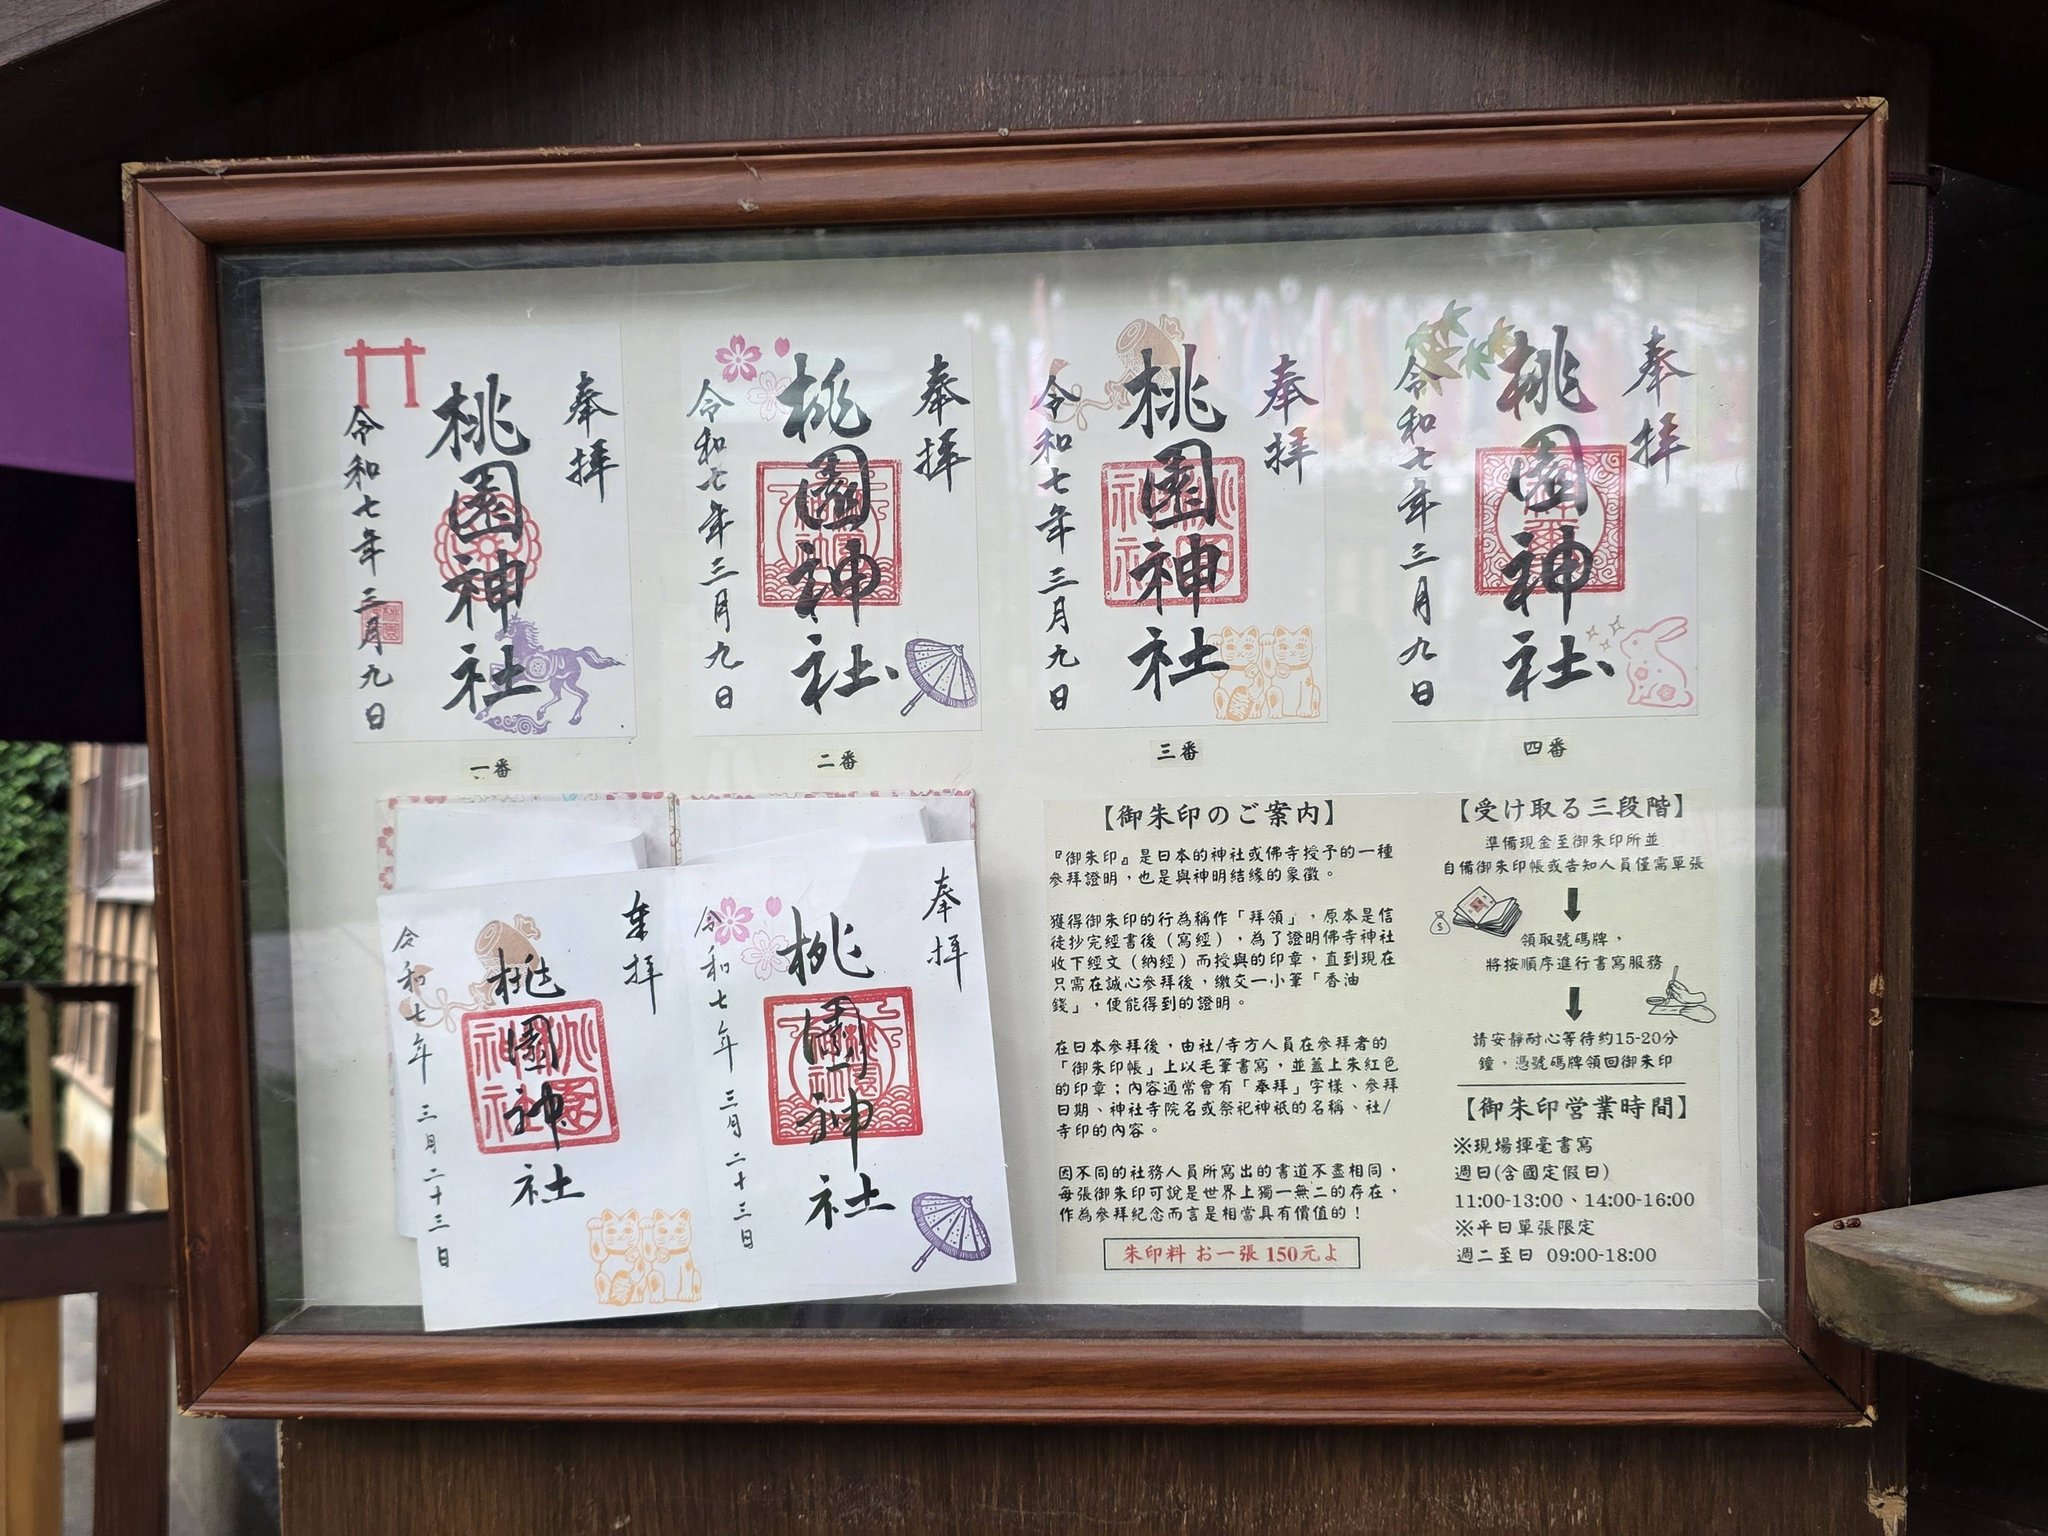 奉拜
桃園神社
令和七年三月九日
一番
奉拜
桃園神社
令和七年三月九日
二番
奉拜
桃園神社
令和七年三月九日
三番
奉拜
桃園神社
令和七年三月九日
四番
奉拜
桃園神社
令和七年三月二十三日
奉拜
桃園神社
令和七年三月二十三日
【御朱印のご案内】
『御朱印』是日本的神社或佛寺授予的一種
參拜證明，也是與神明結緣的象徵。
獲得御朱印的行為稱作「拜領」，原本是信
徒抄完經書後（寫經），為了證明佛寺神社
收下經文（納經）而授與的印章，直到現在
只需在誠心參拜後，繳交一小筆「香油
錢」，便能得到的證明。
在日本參拜後，由社/寺方人員在參拜者的
「御朱印帳」上以毛筆書寫，並蓋上朱紅色
的印章；內容通常會有「奉拜」字樣、參拜
日期、神社寺院名或祭祀神祇的名稱、社/
寺印的內容。
因不同的社務人員所寫出的書道不盡相同，
每張御朱印可說是世界上獨一無二的存在，
作為參拜紀念而言是相當具有價值的！
朱印料 お一張 150元よ
【受け取る三段階】
準備現金至御朱印所並
自備御朱印帳或告知人員僅需單張
領取號碼牌，
將按順序進行書寫服務
請安靜耐心等待約15-20分
鐘，憑號碼牌領回御朱印
【御朱印営業時間】
※現場揮毫書寫
週日(含國定假日)
11:00-13:00、14:00-16:00
※平日單張限定
週二至日 09:00-18:00